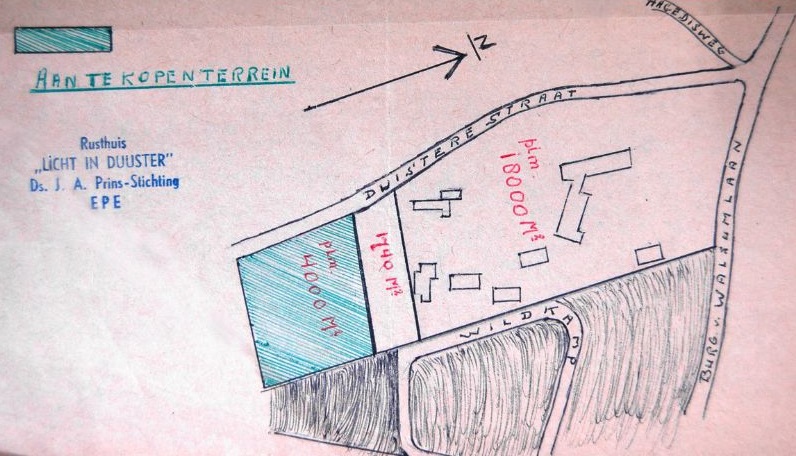 AAN TE KOPEN TERREIN
Rusthuis
„LICHT IN DUUSTER”
Ds. J. A. Prins-Stichting
EPE
N
HAGEDISWEG
DUISTERE STRAAT
plm.
18000 M²
1740 M²
plm.
4000 M²
WILDKAMP
BURG. v. WALSUMLAAN